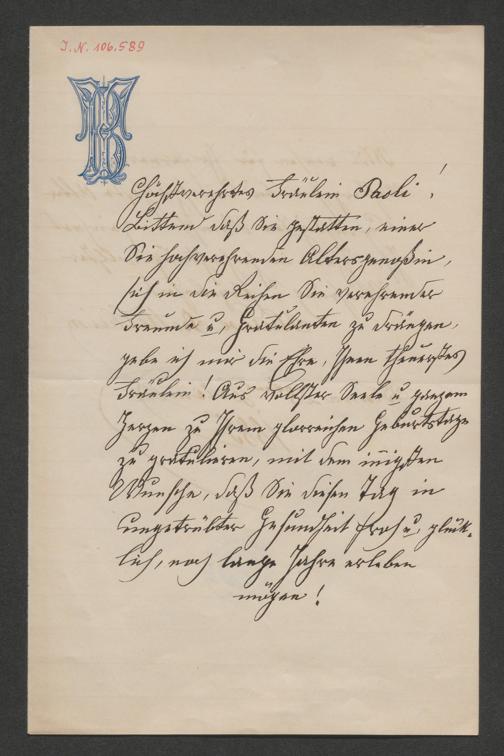 I. N. 106.589
Höchstverehrtes Fräulein Paoli!
Bittend daß Sie gestatten, einer
Sie hochverehrenden Altersgenoßin,
sich in die Reihen Sie verehrender
Freunde u. Gratulanten zu drängen,
gebe ich mir die Ehre, Ihnen theuerstes
Fräulein! Aus vollster Seele u. ganzem
Herzen zu Ihrem glorreichen Geburtstage
zu gratulieren, mit dem innigsten
Wunsche, daß Sie diesen Tag in
ungetrübter Gesundheit froh u. glück-
lich, noch lange Jahre erleben
mögen!